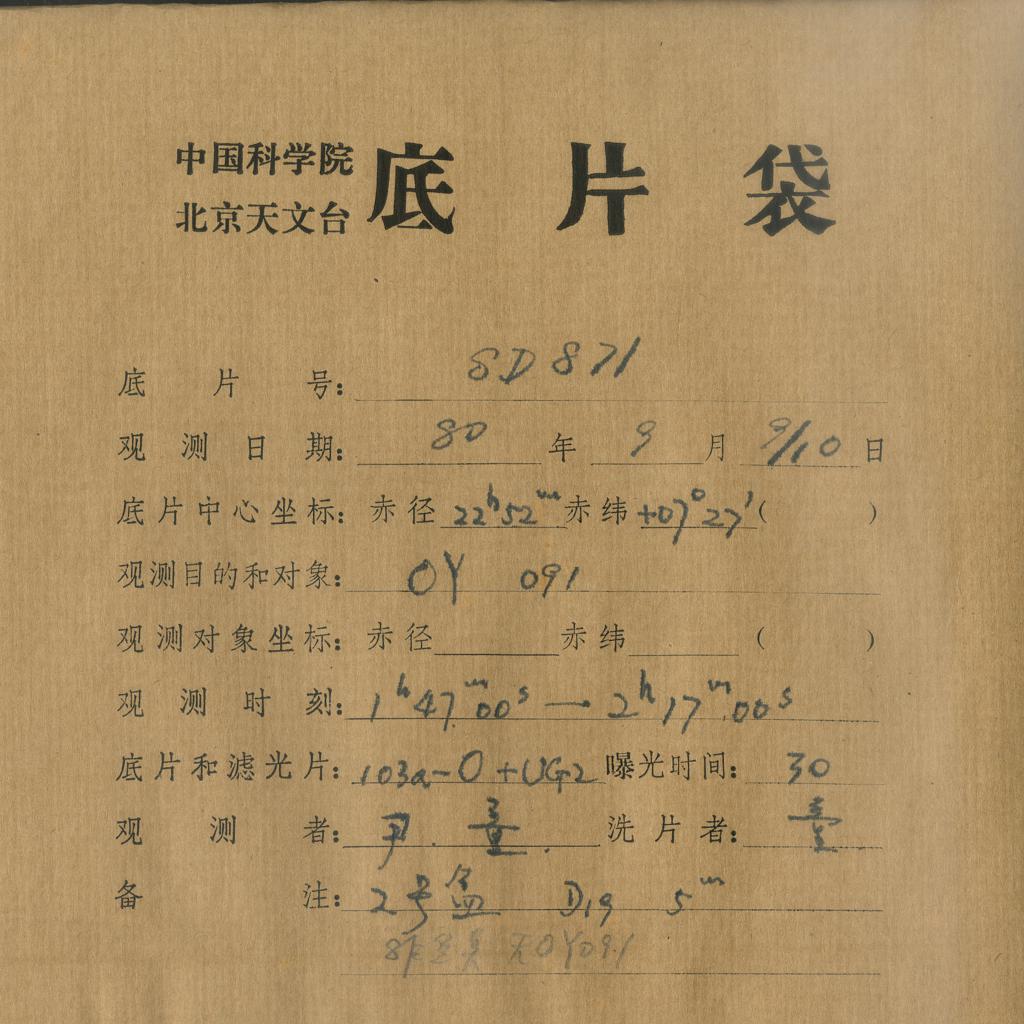 中国科学院
北京天文台
底片袋
底片号：SD871
观测日期：80年9月9/10日
底片中心坐标：赤径22ʰ52ᵐ赤纬+07°27′( )
观测目的和对象：OY 091
观测对象坐标：赤径 赤纬 ( )
观测时刻：1ʰ47ᵐ00ˢ—2ʰ17ᵐ00ˢ
底片和滤光片：103a-O+UG2 曝光时间：30
观测者：尹. 洗片者：
备注：2号盒 D19 5ᵐ
无OY091